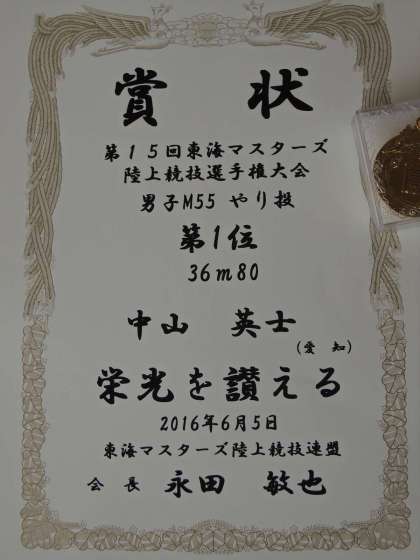 賞状
第15回東海マスターズ
陸上競技選手権大会
男子M55 やり投
第1位
36m80
中山 英士
(愛 知)
栄光を讃える
2016年6月5日
東海マスターズ陸上競技連盟
会 長 永田 敏也